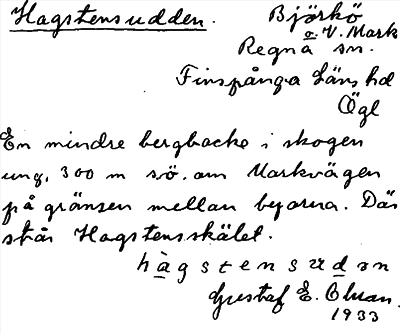 Hagstensudden. Björkö
o. V. Mark
Regna sn.
Finspånga Läns hd
Ögl
En mindre bergbacke i skogen
ung. 300 m sö. om Markvägen
på gränsen mellan byarna. Där
står Hagstensskälet.
hàgstensudən
Gustaf E. Olsson.
1933